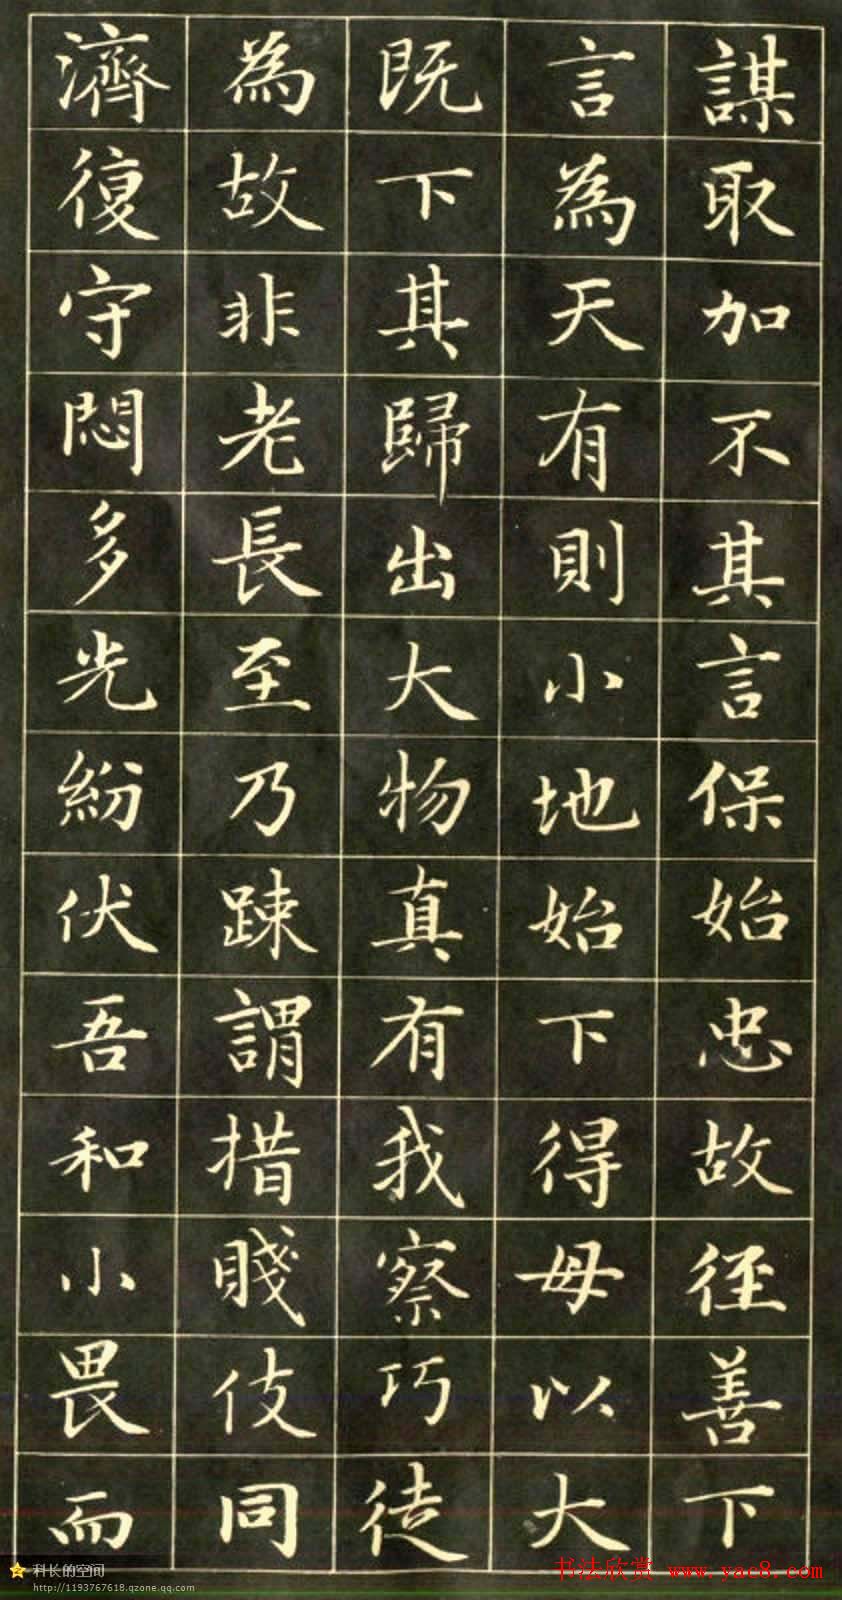 謀取加不其言保始忠故徑善下
言為天有則小地始下得母以大
既下其歸出大物真有我察巧徒
為故非老長至乃踈謂措賤伎同
濟復守悶多光紛伏吾和小畏而
科长的空间
http://1193767618.qzone.qq.com
书法欣赏 www.yac8.com